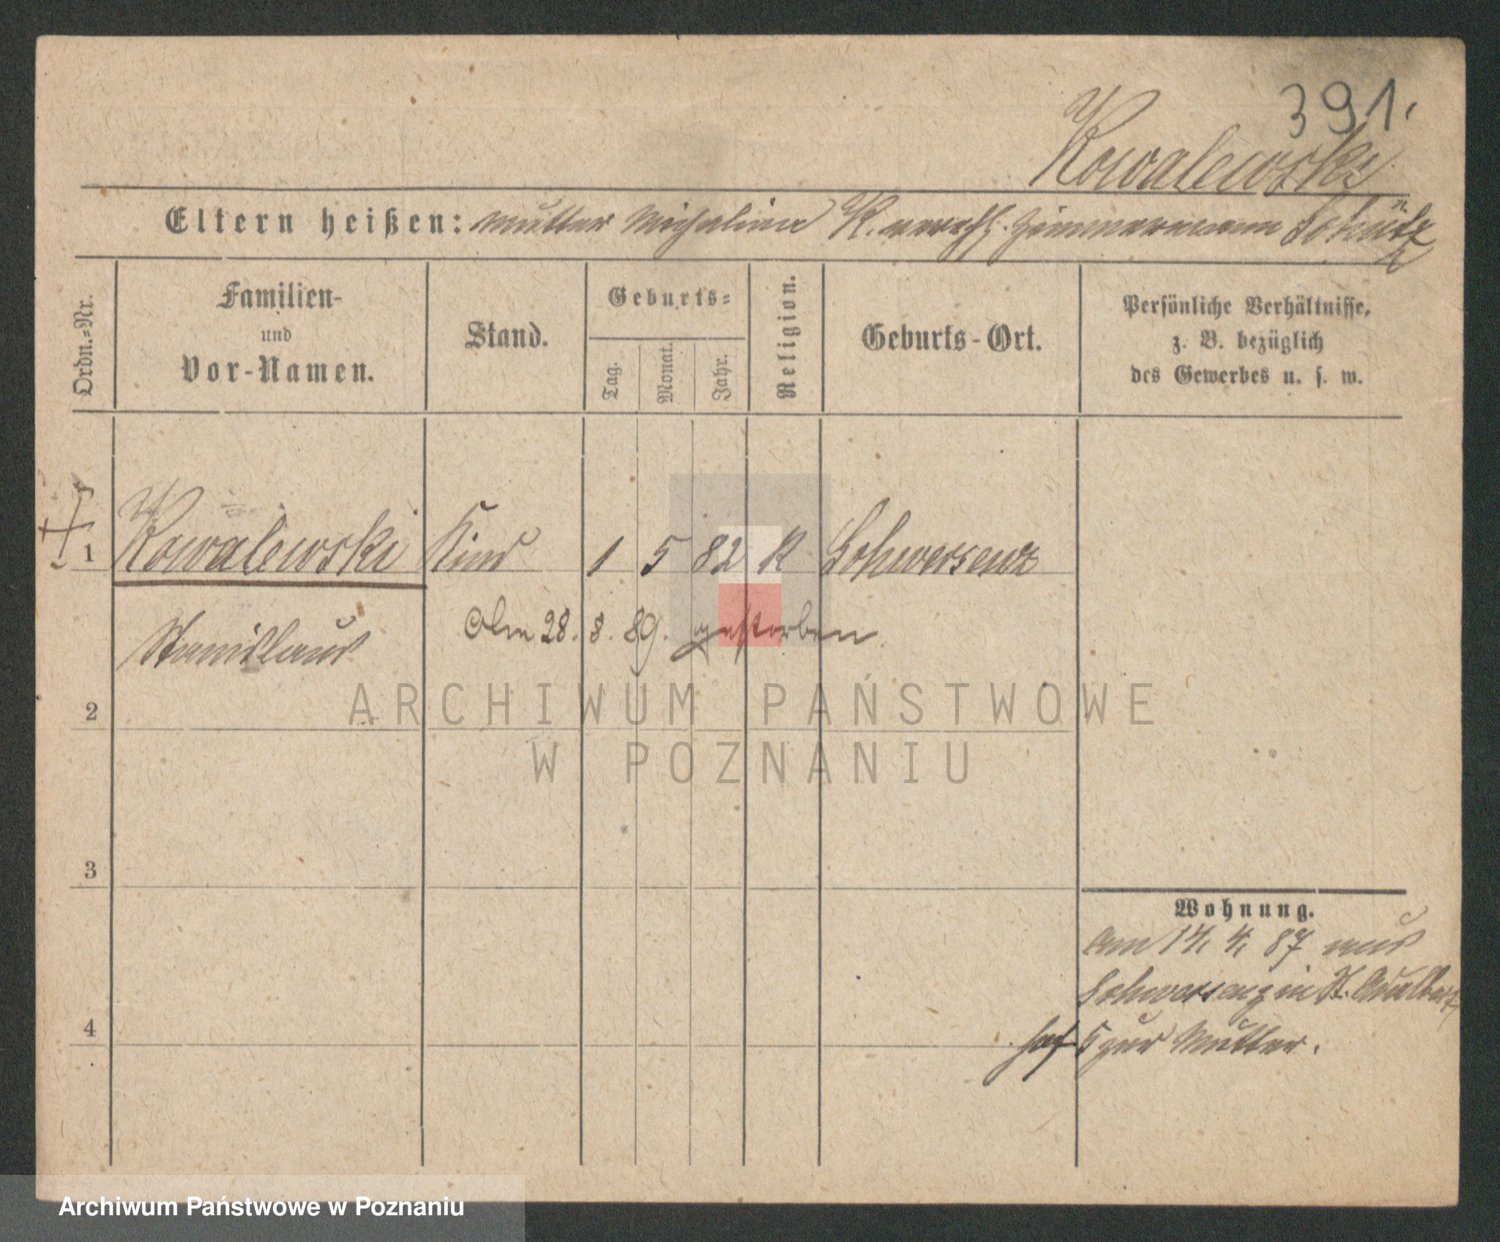 391.
Kowalewski
Eltern heißen: Mutter Michalina K. verehl. Zimmermann Schütz
Ordn.-Nr.
Familien-
und
Vor-Namen.
Stand.
Geburts-
Tag.
Monat.
Jahr.
Religion.
Geburts-Ort.
Persönliche Verhältnisse,
z. B. bezüglich
des Gewerbes u. s. w.
1 Kowalewski Kind 1 5 82 K Schwersenz
Stanislaus
28. 8. 89. gestorben
2
3
4
Wohnung.
am 14/4 87 aus
Schwersenz in St. Adalbert
5 zur Mutter.
ARCHIWUM PAŃSTWOWE
W POZNANIU
Archiwum Państwowe w Poznaniu